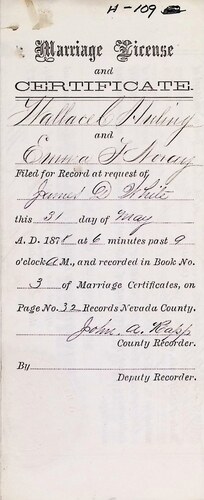 H-109
Marriage License
and
CERTIFICATE.
Wallace C Huling
and
Emma F
Filed for Record at request of
James D White
this 31 day of May
A. D. 187 at 6 minutes past 9
o'clock A M., and recorded in Book No.
3 of Marriage Certificates, on
Page No. 32 Records Nevada County.
John. A. Rapp
County Recorder.
By
Deputy Recorder.